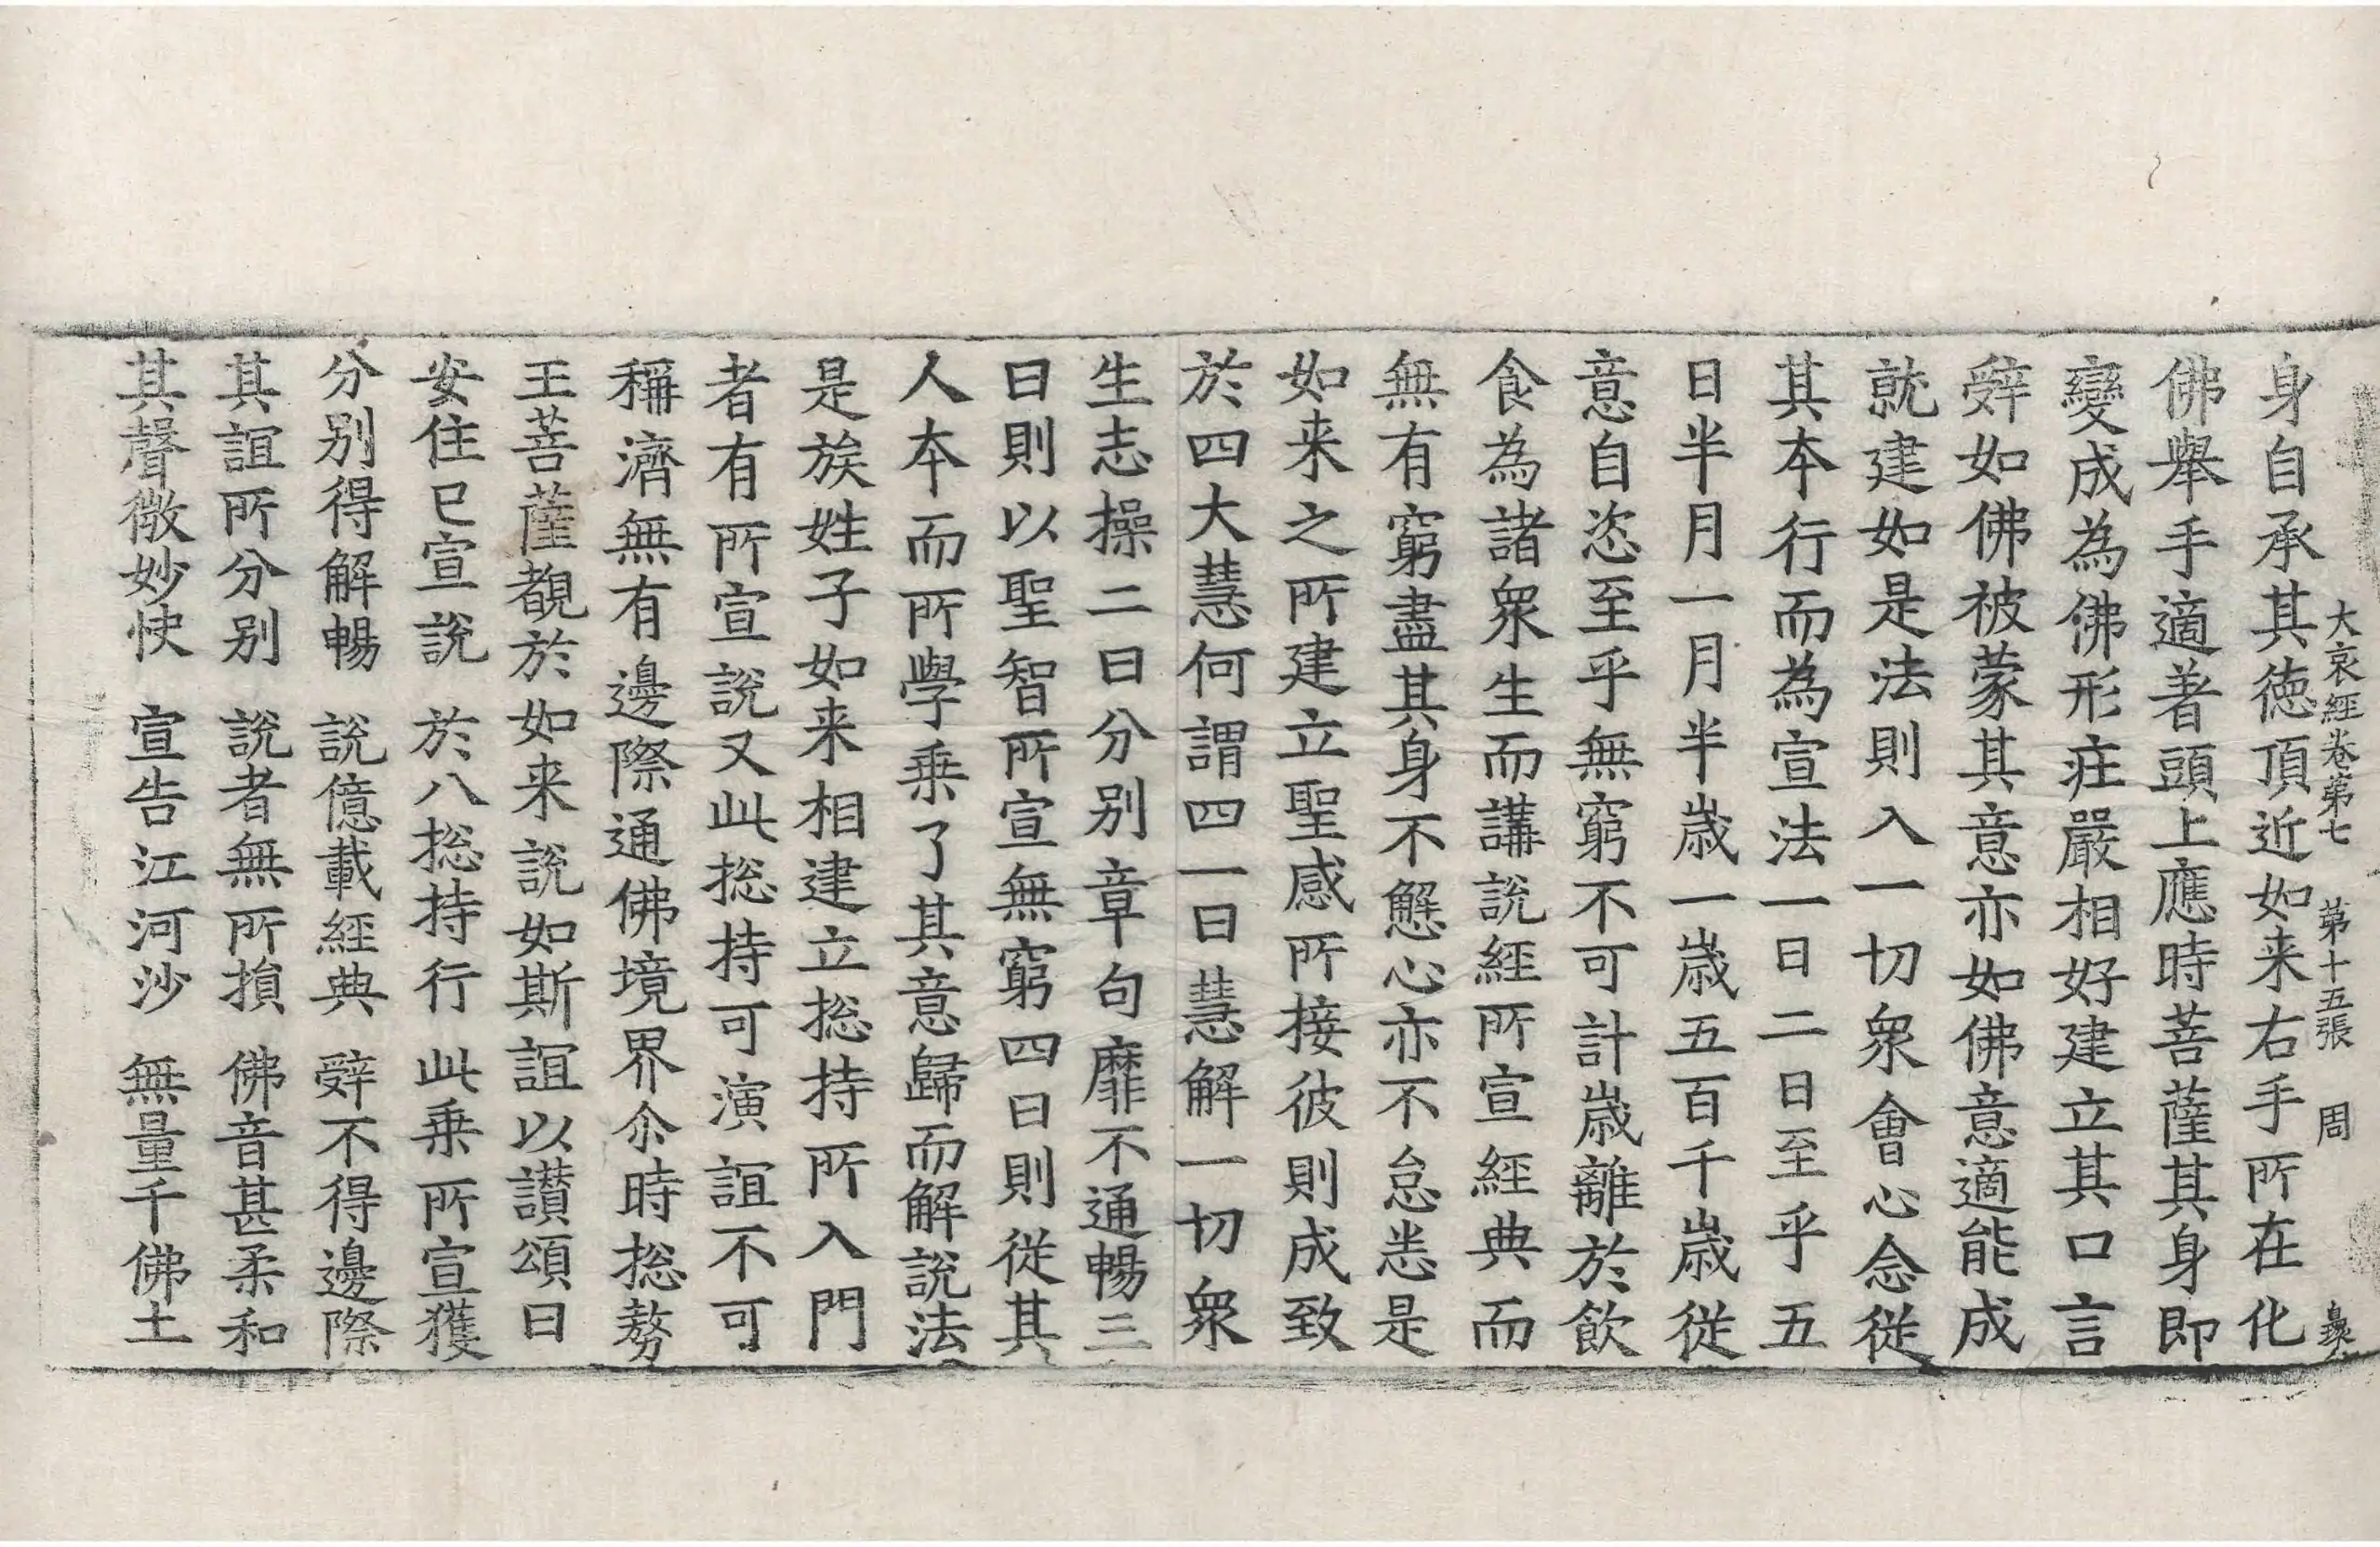 大哀經卷第七 第十五張 周
身自承其德頂近如来右手所在化
佛舉手適著頭上應時菩薩其身即
變成為佛形疘嚴相好建立其口言
辤如佛被蒙其意亦如佛意適能成
就建如是法則入一切衆會心念從
其本行而為宣法一日二日至乎五
日半月一月半歲一歲五百千歲從
意自恣至乎無窮不可計歲離於飲
食為諸衆生而講說經所宣經典而
無有窮盡其身不懈心亦不怠恙是
如来之所建立聖感所接彼則成致
於四大慧何謂四一曰慧解一切衆
生志操二曰分别章句靡不通暢三
曰則以聖智所宣無窮四曰則從其
人本而所學乗了其意歸而解說法
是族姓子如来相建立捴持所入門
者有所宣說又此捴持可演誼不可
稱濟無有邊際通佛境界尒時捴勝
王菩薩覩於如来說如斯誼以讃頌曰
安住已宣說 於八捴持行 此乗所宣獲
分别得解暢 說億載經典 辤不得邊際
其誼所分别 說者無所損 佛音甚柔和
其聲微妙快 宣告江河沙 無量千佛土